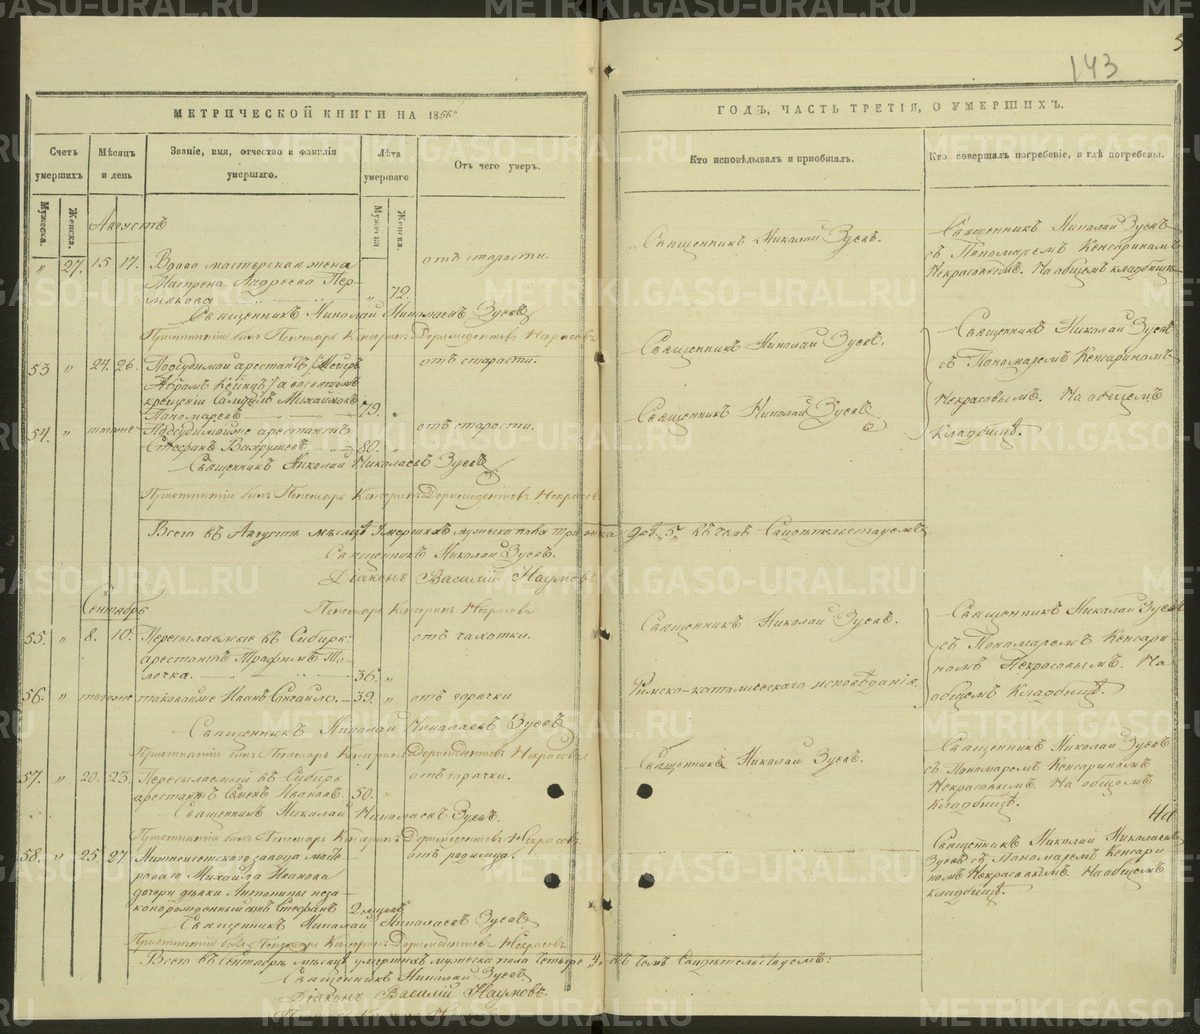 143
МЕТРИЧЕСКОЙ КНИГИ НА 1856
ГОДЪ, ЧАСТЬ ТРЕТІЯ, О УМЕРШИХЪ.
Счетъ умершихъ
Мѣсяцъ и день
Званіе, имя, отчество и фамилія умершаго.
Лѣта умершаго
Отъ чего умеръ.
Кто исповѣдывалъ и приобщалъ.
Кто совершалъ погребеніе, и гдѣ погребены.
Мужеска.
Женска.
Мужеска
Женска
Августъ
" 27. 15 17. Вдова мастерская жена
Матрена Андреева Пер-
мякова " 72.
отъ старости.
Священникъ Николай Зуевъ.
Священникъ Николай Зуевъ
съ Пономаремъ Кенсариномъ
Некрасовымъ. На общемъ кладбищѣ
Священникъ Николай Николаевъ Зуевъ
Пономарь Кенсаринъ Дормедонтовъ Некрасовъ
53 " 24. 26. Подсудимой арестантъ
Абрамъ
крещеніи Михайловъ
Пономаревъ 79. "
отъ старости.
Священникъ Николай Зуевъ.
Священникъ Николай Зуевъ
съ Пономаремъ Кенсариномъ
Некрасовымъ. На общемъ
кладбищѣ.
54. " тогоже Подсудимойже арестантъ
Стефанъ Вахрушевъ 80. "
отъ старости.
Священникъ Николай Зуевъ
Священникъ Николай Николаевъ Зуевъ
Пономарь Кенсаринъ Дормедонтовъ Некрасовъ
Всего въ Августѣ мѣсяцѣ умершихъ мужеска пола три женска Свидѣтельствуемъ
Священникъ Николай Зуевъ.
Діаконъ Василій Наумовъ.
Пономарь Кенсаринъ Некрасовъ
Сентябрь
55. " 8. 10. Пересылаемые въ Сибирь:
арестантъ Трофимъ То-
лочка. 36. "
отъ чахотки.
Священникъ Николай Зуевъ.
Священникъ Николай Зуевъ
съ Пономаремъ Кенсари-
номъ Некрасовымъ. На
общемъ кладбищѣ.
56. " тогоже таковойже Иванъ 39. "
отъ горячки
Римско-католическаго исповѣданія.
Священникъ Николай Николаевъ Зуевъ
Пономарь Кенсаринъ Дормедонтовъ Некрасовъ
57. " 20. 23. Пересылаемый въ Сибирь
арестантъ Семенъ Ивановъ 50. "
отъ горячки.
Священникъ Николай Зуевъ.
Священникъ Николай Зуевъ
съ Пономаремъ Кенсариномъ
Некрасовымъ. На общемъ
кладбищѣ.
Священникъ Николай Николаевъ Зуевъ.
Пономарь Кенсаринъ Дормедонтовъ Некрасовъ
58. " 25. 27. завода масте-
роваго Михайла Иванова
дочери дѣвки Антонины неза-
коннорожденный сынъ Стефанъ 2 мѣсяцовъ
отъ родимца.
Священникъ Николай Николаевъ
Зуевъ съ Пономаремъ Кенсари-
номъ Некрасовымъ. На общемъ
кладбищѣ.
Священникъ Николай Николаевъ Зуевъ
Пономарь Кенсаринъ Дормедонтовъ Некрасовъ.
Всего въ Сентябрѣ мѣсяцѣ умершихъ мужеска пола четыре въ чемъ Свидѣтельствуемъ:
Священникъ Николай Зуевъ
Діаконъ Василій Наумовъ.
METRIKI.GASO-URAL.RU